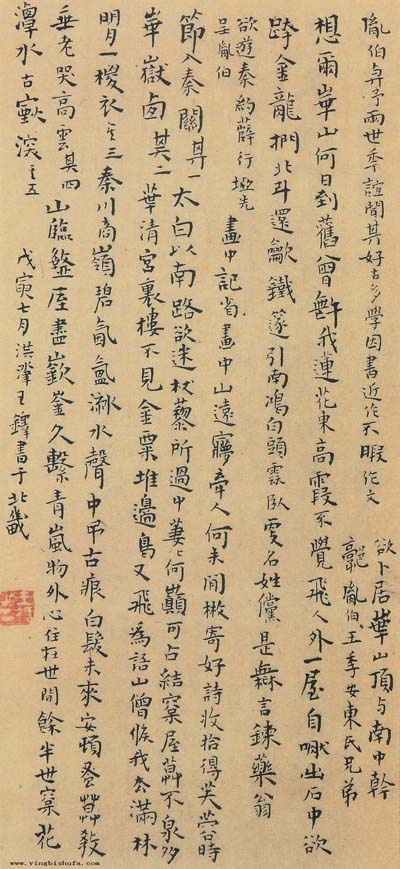 胤伯與予兩世年誼聞其好古多學因書近作不暇作文
欲卜居華山頂與南中幹
胤伯王季安東氏兄弟
想爾華山何日到舊曾許我蓮花東高霞不覺飛人外一屋自出石中欲
跨金龍捫北斗還歙鐵篴引南鴻白頭臥更名姓儻是無言鍊藥翁
欲遊秦約薛行塢先
呈胤伯
畫中記省畫中山遠夢牽人何未閒寄好詩收拾得芙蓉時
節入秦關其一 太白以南路欲迷杖藜所過中萋萋何巔可占結窠屋草木泉多
華嶽其二 華清宮裏樓不見金粟堆邊鳥又飛為話山僧候我公滿林
明月一衣之三 秦川商嶺碧氤氳水聲中弔古痕白髮未來安頓蚤草教
垂老哭高雲其四 山臨盩厔盡嶔崟久繫青嵐物外心住在世間餘半世窠花
水古之五
戊寅七月王鐸書于北畿
www.yingbishufa.com